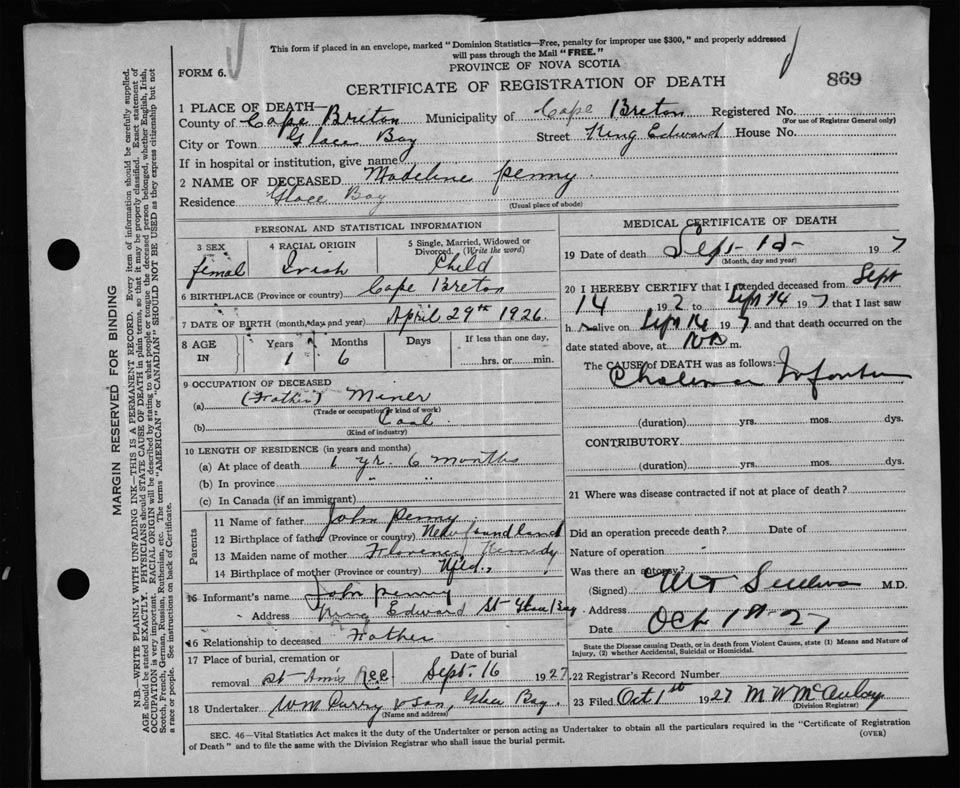 This form if placed in an envelope, marked "Dominion Statistics—Free, penalty for improper use $300," and properly addressed
will pass through the Mail "FREE."
FORM 6.
PROVINCE OF NOVA SCOTIA
869
CERTIFICATE OF REGISTRATION OF DEATH
1 PLACE OF DEATH—
County of Cape Breton Municipality of Cape Breton Registered No.
(For use of Registrar General only)
City or Town Glace Bay Street King Edward House No.
If in hospital or institution, give name
2 NAME OF DECEASED Madeline Penny
Residence Glace Bay
(Usual place of abode)
PERSONAL AND STATISTICAL INFORMATION
3 SEX
femal
4 RACIAL ORIGIN
Irish
5 Single, Married, Widowed or
Divorced. (Write the word)
Child
6 BIRTHPLACE (Province or country) Cape Breton
7 DATE OF BIRTH (month, day and year) April 29th 1926
8 AGE IN
Years 1
Months 6
Days
If less than one day,
hrs. or min.
9 OCCUPATION OF DECEASED
(a) (Father) Miner
(Trade or occupation or kind of work)
(b) Coal
(Kind of industry)
10 LENGTH OF RESIDENCE (in years and months)
(a) At place of death 1 yr. 6 months
(b) In province " "
(c) In Canada (if an immigrant)
Parents
11 Name of father John Penny
12 Birthplace of father (Province or country) Newfoundland
13 Maiden name of mother Florence
14 Birthplace of mother (Province or country) Nfld.,
15 Informant's name John Penny
Address King Edward St Glace Bay
16 Relationship to deceased Father
17 Place of burial, cremation or
removal St Ann's
Date of burial
Sept. 16 1927
18 Undertaker Wm Curry & Son, Glace Bay.
(Name and address)
MEDICAL CERTIFICATE OF DEATH
19 Date of death Sept 192 7
(Month, day and year)
20 I HEREBY CERTIFY that I attended deceased from Sept
14 192 to Sept 14 192 7 that I last saw
h alive on Sept 14 192 7 and that death occurred on the
date stated above, at m.
The CAUSE of DEATH was as follows:
Cholera Infantum
(duration) yrs. mos. dys.
CONTRIBUTORY
(duration) yrs. mos. dys.
21 Where was disease contracted if not at place of death?
Did an operation precede death? Date of
Nature of operation
Was there an autopsy?
(Signed) M.D.
Address
Date Oct 1st 27
State the Disease causing Death, or in death from Violent Causes, state (1) Means and Nature of
Injury, (2) whether Accidental, Suicidal or Homicidal.
22 Registrar's Record Number
23 Filed Oct 1st 1927 M W McAulay
(Division Registrar)
SEC. 46—Vital Statistics Act makes it the duty of the Undertaker or person acting as Undertaker to obtain all the particulars required in the "Certificate of Registration
of Death" and to file the same with the Division Registrar who shall issue the burial permit.
(OVER)
MARGIN RESERVED FOR BINDING
N.B.—WRITE PLAINLY WITH UNFADING INK—THIS IS A PERMANENT RECORD. Every item of information should be carefully supplied.
AGE should be stated EXACTLY. PHYSICIANS should STATE CAUSE OF DEATH in plain terms, so that it may be properly classified. Exact statement of
OCCUPATION is very important. RACIAL ORIGIN will be described by stating to what people or tongue the deceased person belonged, whether English, Irish,
Scotch, French, German, Russian, Ruthenian, etc. The terms "AMERICAN" or "CANADIAN" SHOULD NOT BE USED as they express citizenship but not
a race or people. See instructions on back of Certificate.